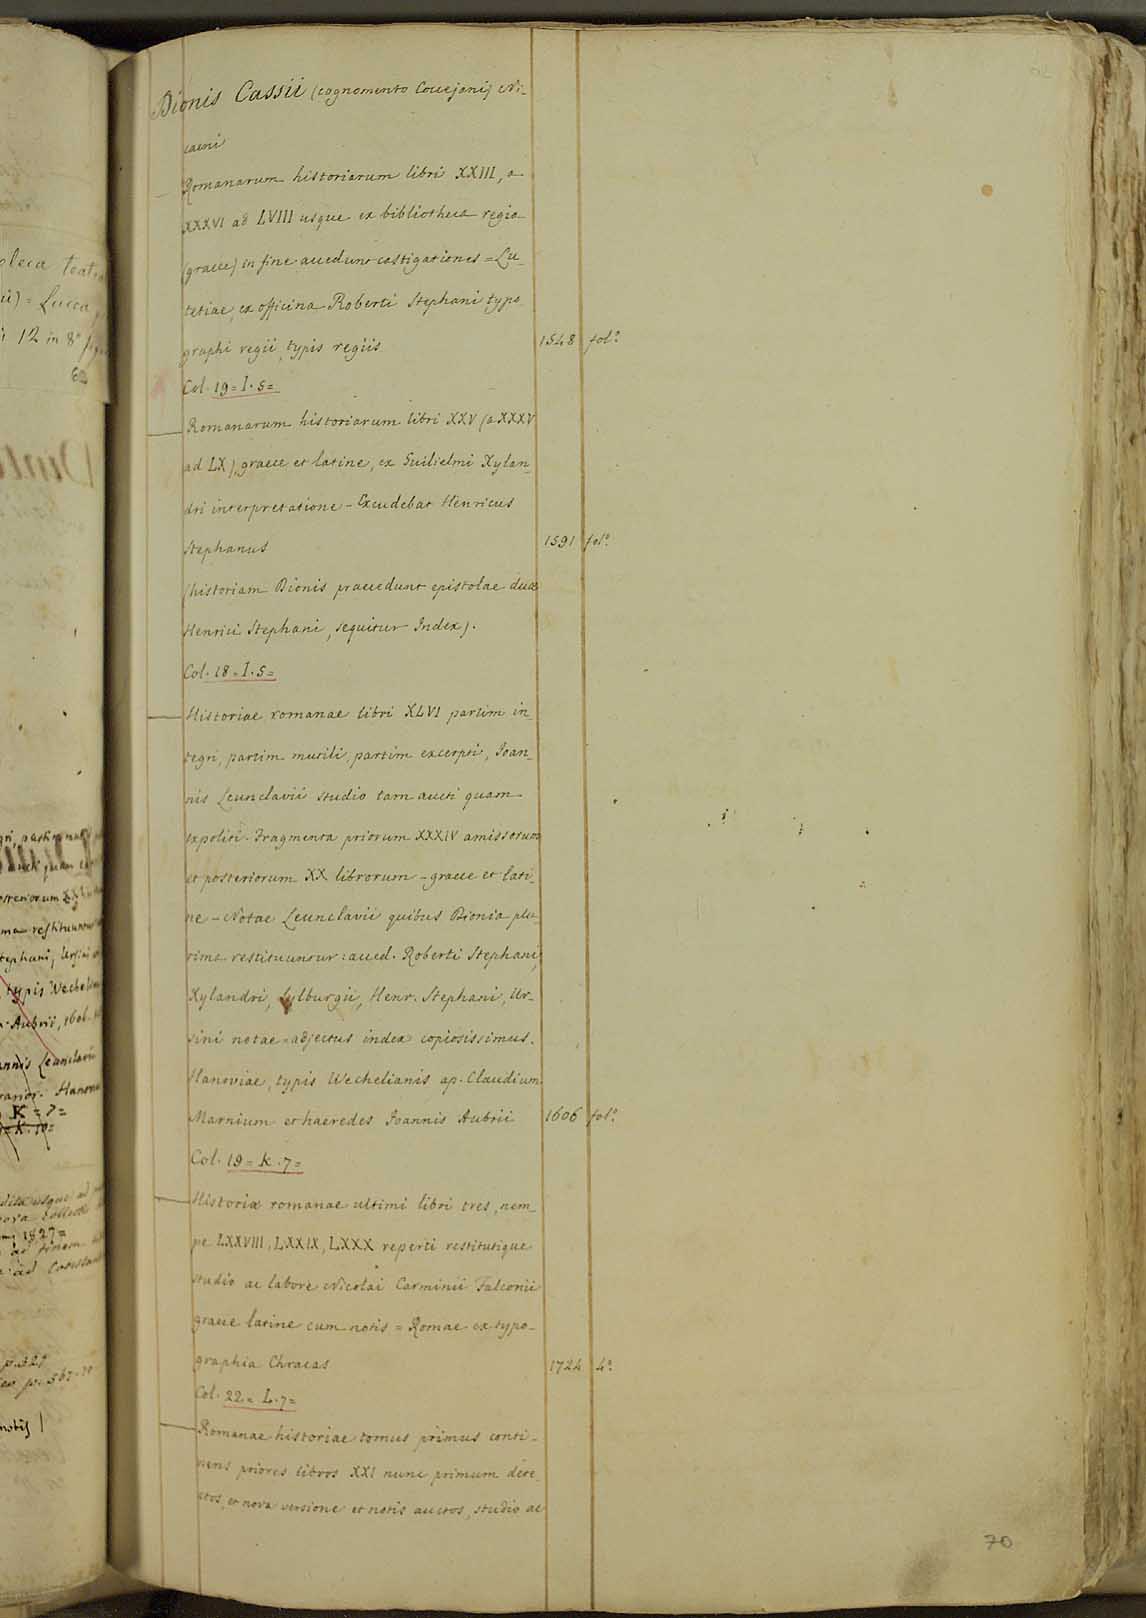 Dionis Cassii (cognomento Coccejani) Ni-
caeni
Romanarum historiarum libri XXIII, a
XXXVI ad LVIII usque ex bibliotheca regia
(graece) in fine accedunt castigationes = Lu-
tetiae, ex officina Roberti Stephani typo
graphi regii, typis regiis 1548 fol.º
Col. 19 = I. 5 =
Romanarum historiarum libri XXV (a XXXV
ad LX), graece et latine, ex Guilielmi Xylan-
dri interpretatione - Excudebat Henricus
Stephanus 1591 fol.º
(historiam Dionis praecedunt epistolae duae
Henrici Stephani, sequitur Index).
Col. 18 = I. 5 =
Historiae romanae libri XLVI partim in-
tegri, partim mutili, partim excerpti, Joan-
nis Leunclavii studio tam aucti quam
expoliti. Fragmenta priorum XXXIV amissorum
et posteriorum XX librorum - graece et lati-
ne - Notae Leunclavii quibus Dionia plu-
rima restituuntur: acced. Roberti Stephani,
Xylandri, Sylburgii, Henr. Stephani, Ur-
sini notae = adjectus index copiosissimus.
Hanoviae, typis Wechelianis ap. Claudium
Marnium et haeredes Joannis Aubrii 1606 fol.º
Col. 19 = K. 7 =
Historiæ romanae ultimi libri tres, nem-
pe LXXVIII, LXXIX, LXXX reperti restitutique
studio ac labore Nicolai Carminii Falconii
graece latine cum notis = Romae ex typo-
graphia Chracas 1724 4.º
Col. 22 = L. 7 =
Romanae historiae tomus primus conti-
nens priores libros XXI nunc primum dete-
ctos, et nova versione et notis auctos, studio ac
70